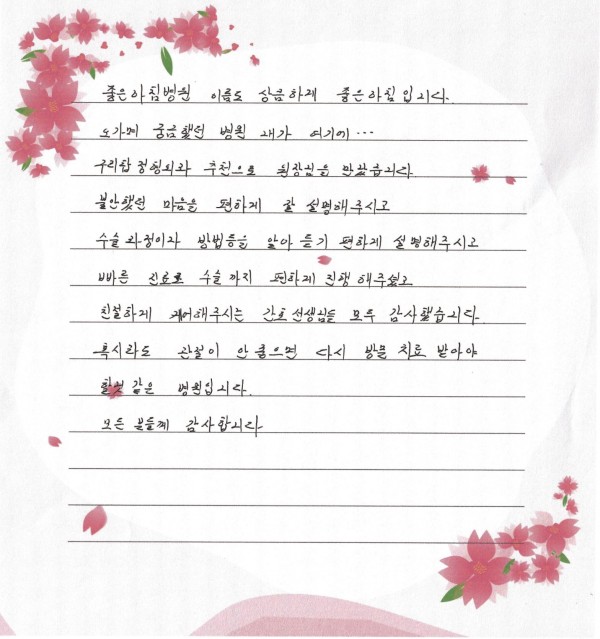 좋은아침병원 이름도 상큼하게 좋은아침입니다.
궁금했던 병원 내가 여기에...
구리탑정형외과 추천으로 원장님을 만났습니다
불안했던 마음을 편하게 잘 설명해주시고
수술과정이자 방법등을 알아 듣기 편하게 설명해주시고
빠른 진료로 수술까지 편하게 진행해주셨고
친절하게 케어해주시는 간호선생님들 모두 감사했습니다.
혹시라도 관절이 안좋으면 다시 방문 치료 받아야
할것같은 병원입니다.
모든 분들께 감사합니다